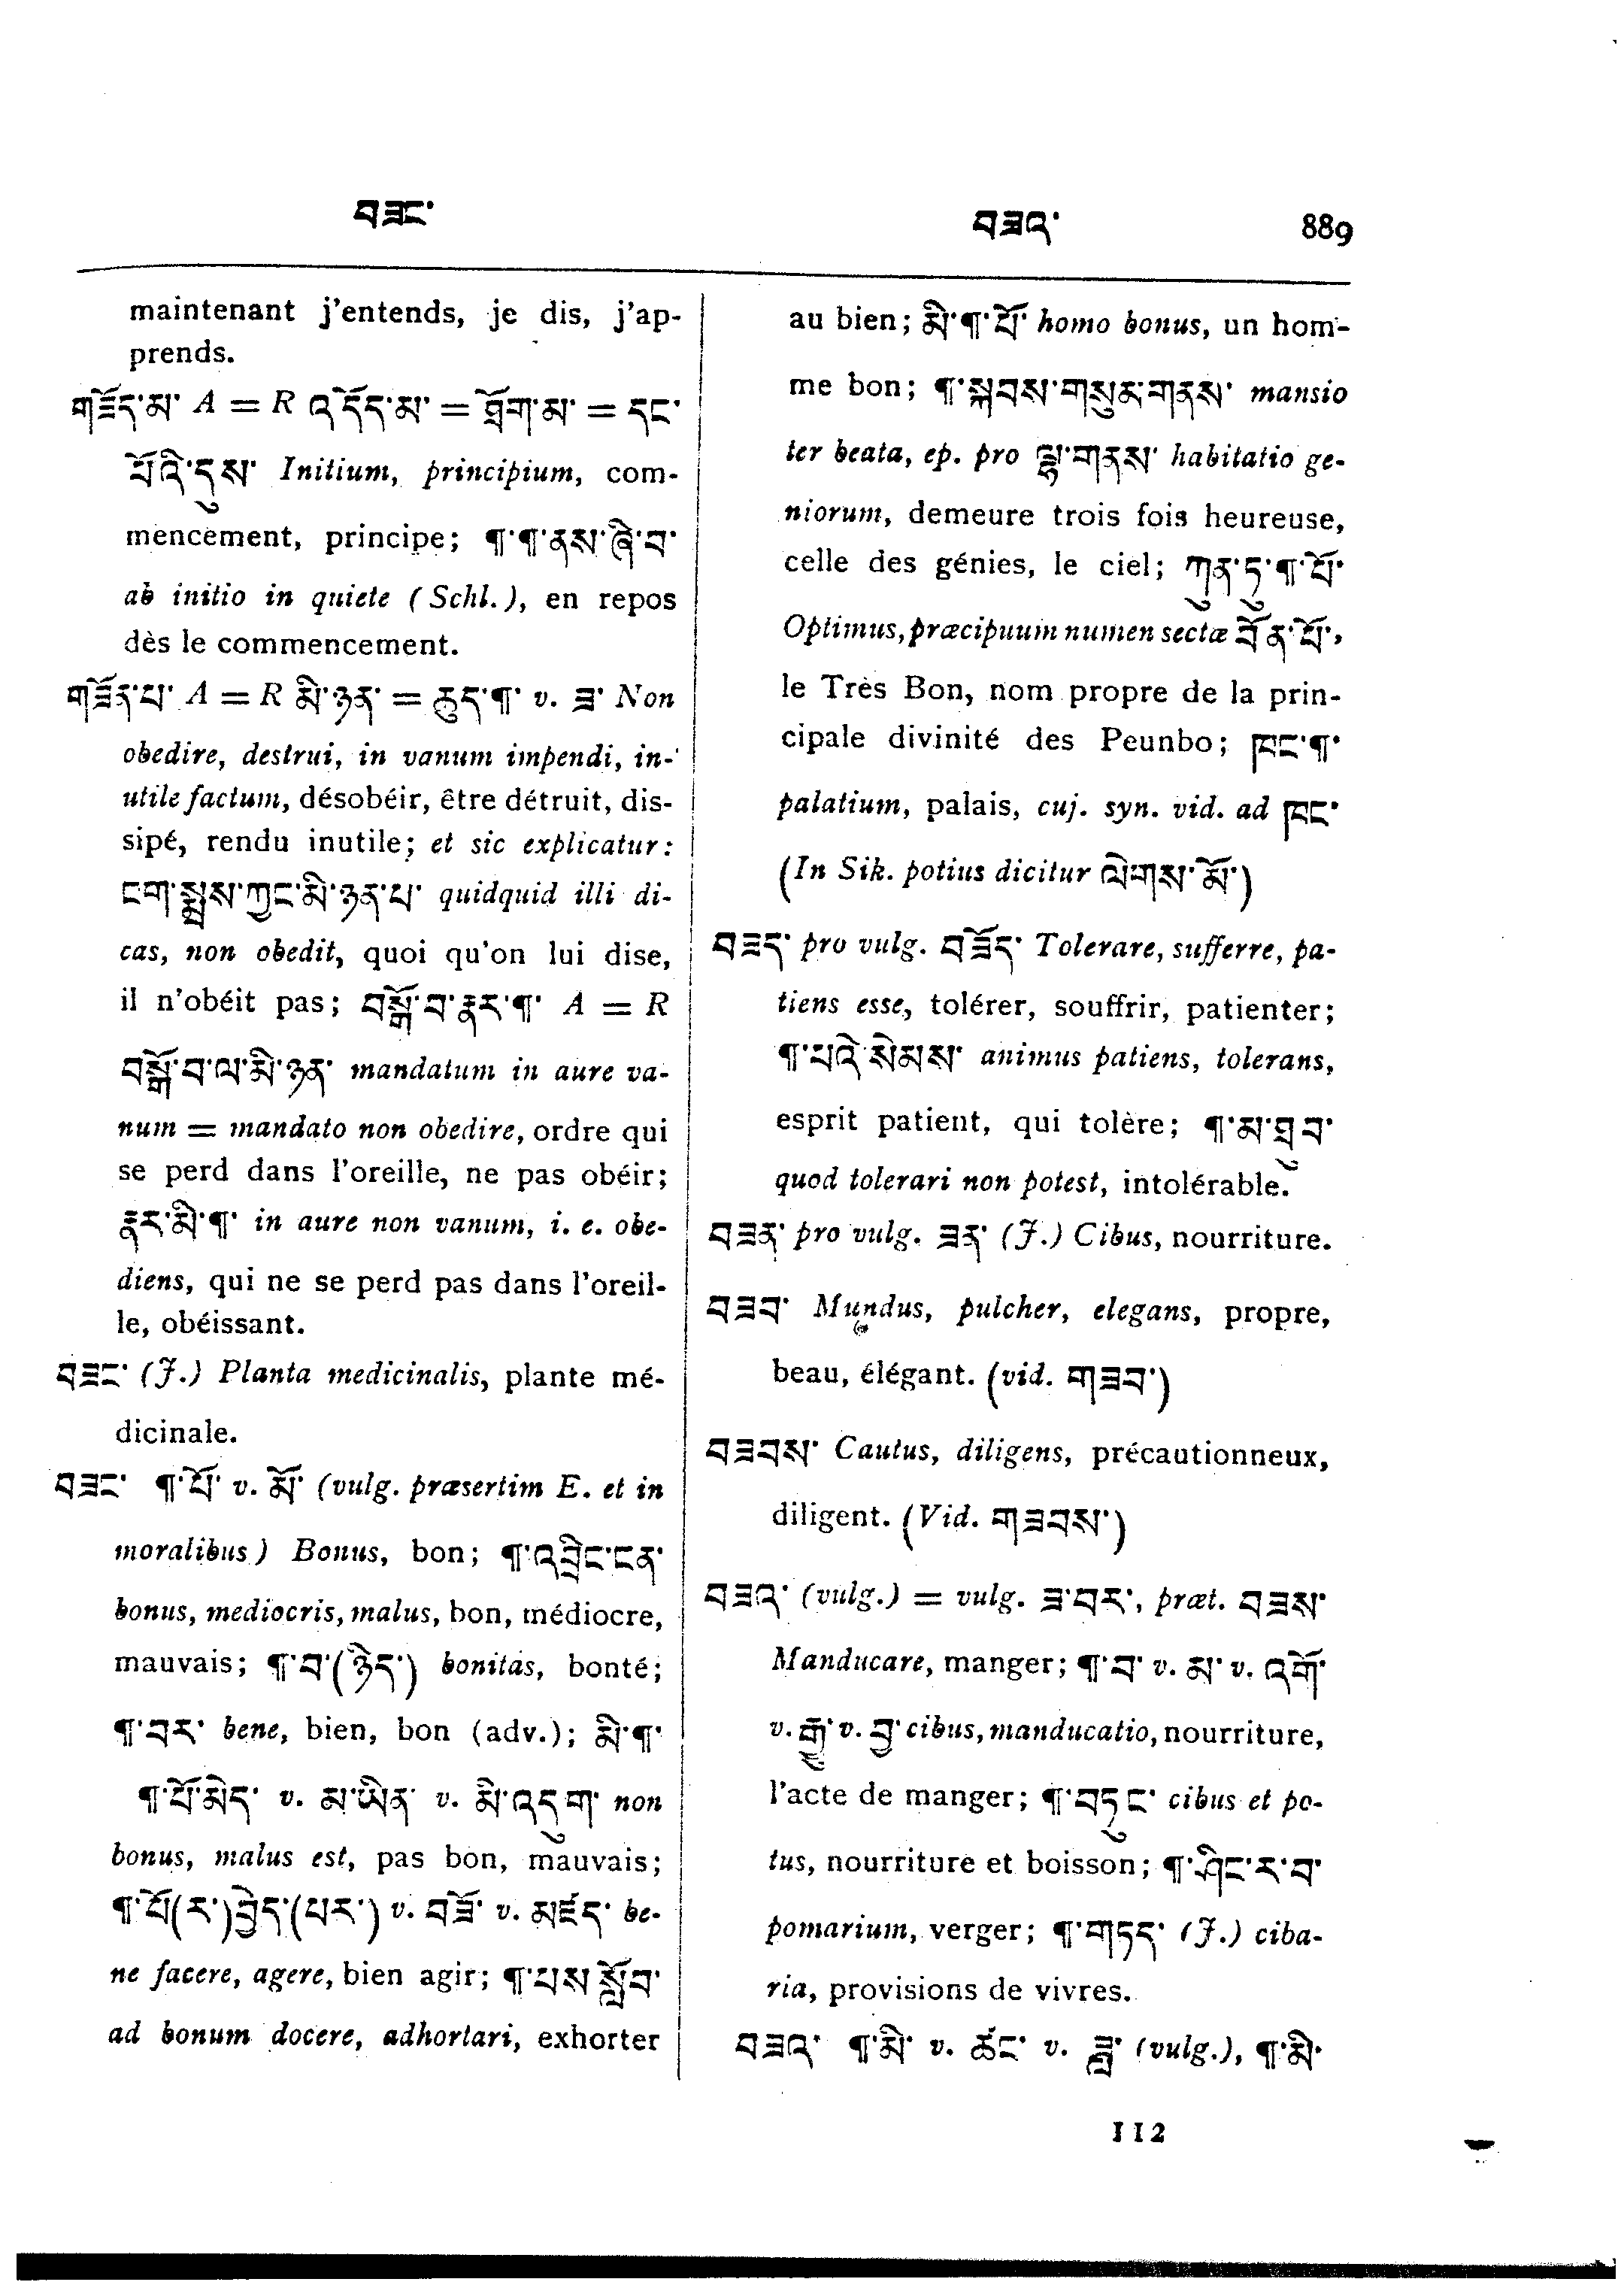 བཟང་
བཟའ་ 889
maintenant j'entends, je dis, j'ap-
prends.
གཟོད་མ་ A = R འདོད་མ་ = ཐོག་མ་ = དང་
པོའི་དུས་ Initium, principium, com-
mencement, principe; ¶་¶་ནས་ཞི་བ་
ab initio in quiete (Schl.), en repos
dès le commencement.
གཟོན་པ་ A = R མི་ཉན་ = ཆུད་¶་ v. ཟ་ Non
obedire, destrui, in vanum impendi, in-
utile factum, désobéir, être détruit, dis-
sipé, rendu inutile; et sic explicatur:
ངག་སྨྲས་ཀྱང་མི་ཉན་པ་ quidquid illi di-
cas, non obedit, quoi qu'on lui dise,
il n'obéit pas; བསྒོ་བ་རྣར་¶་ A = R
བསྒོ་བ་ལ་མི་ཉན་ mandatum in aure va-
num = mandato non obedire, ordre qui
se perd dans l'oreille, ne pas obéir;
རྣར་མི་¶་ in aure non vanum, i. e. obe-
diens, qui ne se perd pas dans l'oreil-
le, obéissant.
བཟང་ (J.) Planta medicinalis, plante mé-
dicinale.
བཟང་ ¶་པོ་ v. མོ་ (vulg. præsertim E. et in
moralibus) Bonus, bon; ¶་འབྲིང་ངན་
bonus, mediocris, malus, bon, médiocre,
mauvais; ¶་བ་(ཉེད་) bonitas, bonté;
¶་བར་ bene, bien, bon (adv.); མི་¶་
¶་པོ་མེད་ v. མ་ཡིན་ v. མི་འདུག་ non
bonus, malus est, pas bon, mauvais;
¶་པོ(ར་)བྱེད་(པར་) v. བཟོ་ v. མཛད་ be-
ne facere, agere, bien agir; ¶་པས་སློབ་
ad bonum docere, adhortari, exhorter
au bien; མི་¶་པོ་ homo bonus, un hom-
me bon; ¶་སྐབས་གསུར་གནས་ mansio
ter beata, ep. pro ལྷ་གནས་ habitatio ge-
niorum, demeure trois fois heureuse,
celle des génies, le ciel; ཀུན་ཏུ་¶་པོ་
Optimus, præcipuum numen sectæ བོན་པོ་,
le Très Bon, nom propre de la prin-
cipale divinité des Peunbo; ཁང་¶་
palatium, palais, cuj. syn. vid. ad ཁང་
(In Sik. potius dicitur ལེགས་མོ་)
བཟད་ pro vulg. བཟོད་ Tolerare, sufferre, pa-
tiens esse, tolérer, souffrir, patienter;
¶་པའི་སེམས་ animus patiens, tolerans,
esprit patient, qui tolère; ¶་མ་ཐུབ་
quod tolerari non potest, intolérable.
བཟན་ pro vulg. ཟན་ (J.) Cibus, nourriture.
བཟབ་ Mundus, pulcher, elegans, propre,
beau, élégant. (vid. གཟབ་)
བཟབས་ Cautus, diligens, précautionneux,
diligent. (Vid. གཟབས་)
བཟའ་ (vulg.) = vulg. ཟ་བར་, præt. བཟས་
Manducare, manger; ¶་བ་ v. མ་ v. འགོ་
v. རྒྱུ་ v. བྱ་ cibus, manducatio, nourriture,
l'acte de manger; ¶་བཏུང་ cibus et po-
tus, nourriture et boisson; ¶་ཤིང་ར་བ་
pomarium, verger; ¶་གཏད་ (J.) ciba-
ria, provisions de vivres.
བཟའ་ ¶་མི་ v. ཚང་ v. ཟླ་ (vulg.), ¶་མི་
112